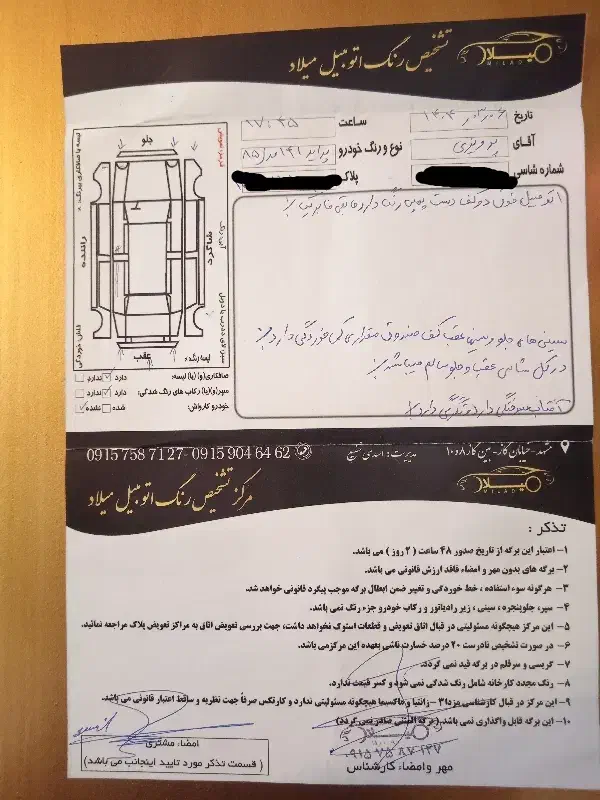 تشخیص رنگ اتومبیل میلاد
میلاد
MILAD
تاریخ
ساعت ۱۷:۴۵
آقای پرویزی
نوع و رنگ خودرو پراید ۱۴۱ مدل ۸۵
شماره شاسی
پلاک
اتومبیل فوق
رنگ دارد مابقی فابریک
جلو
راننده
شاگرد
عقب
لیسه رنگ:
سینی های جلو و سینی عقب کف صندوق مقداری گل خوردگی دارد
در کل شاسی عقب و جلو سالم میباشد
آفتاب سوختگی دارد
صافکاری(و)(یا) لیسه: دارد ندارد
سپر(و)(یا) رکاب های رنگ شدگی: دارد ندارد
خودرو کارواش: شده نشده
مشهد- خیابان گاز- بین گاز ۸ و ۱۰
مدیریت: اسدی شفیع
0915 904 64 62 - 0915 758 71 27
میلاد
MILAD
مرکز تشخیص رنگ اتومبیل میلاد
تذکر :
۱- اعتبار این برگه از تاریخ صدور ۴۸ ساعت ( ۲ روز ) می باشد.
۲- برگه های بدون مهر و امضاء فاقد ارزش قانونی می باشد.
۳- هرگونه سوء استفاده ، خط خوردگی و تغییر ضمن ابطال برگه موجب پیگرد قانونی خواهد شد.
۴- سپر، جلوپنجره ، سینی ، زیر رادیاتور و رکاب خودرو جزء رنگ نمی باشد.
۵- این مرکز هیچگونه مسئولیتی در قبال اتاق تعویض و قطعات استوک نخواهد داشت، جهت بررسی تعویض اتاق به مراکز تعویض پلاک مراجعه نمائید.
۶- در صورت تشخیص نادرست ۲۰ درصد خسارت ناشی بعهده این مرکز می باشد.
۷- گریسی و سرقلم در برگه قید نمی گردد.
۸- رنگ مجدد کارخانه شامل رنگ شدگی نمی شود و کسر قیمت ندارد.
۹- این مرکز در قبال کارشناسی مزدا۳ - زانتیا و ماکسیما هیچگونه مسئولیتی ندارد و کارتکس صرفاً جهت نظریه و ساقط اعتبار قانونی می باشد.
۱۰- این برگه قابل واگذاری نمی باشد. (برگه المثنی صادر نمی گردد)
امضاء مشتری
( قسمت تذکر مورد تایید اینجانب می باشد )
میلاد
۰۹۱۵ ۷۵ ۸۷ ۱۲۷
مهر و امضاء کارشناس